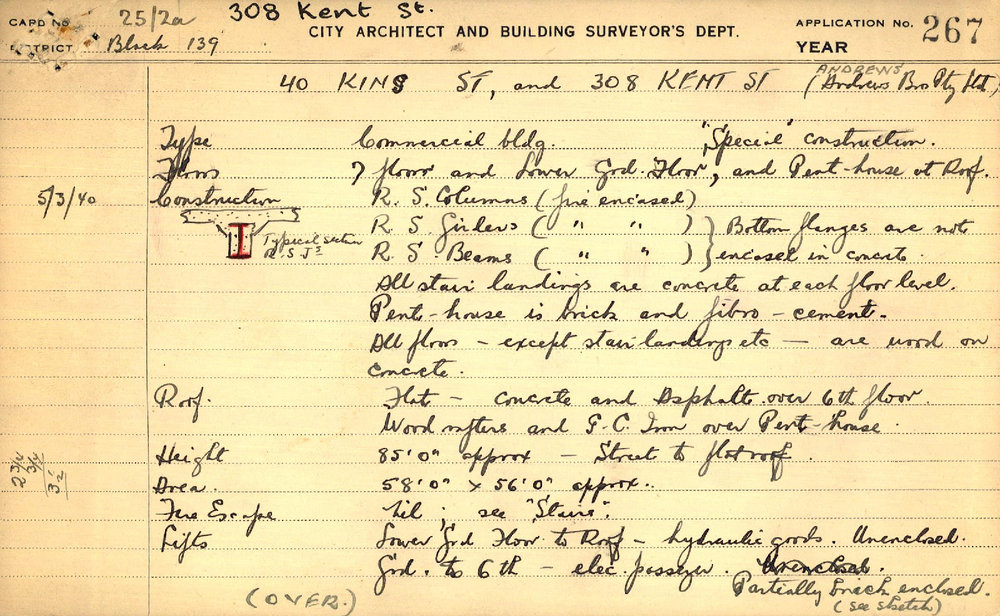 CARD No. 25/2a 308 Kent St.
CITY ARCHITECT AND BUILDING SURVEYOR'S DEPT.
APPLICATION No. 267
DISTRICT Block 139
YEAR
ANDREWS
40 KING ST, and 308 KENT ST (Andrews Bro Pty Ltd)
Type Commercial bldg. "Special" construction.
Floors 7 floors and Lower Grd. Floor, and Pent-house at Roof.
5/3/40 Construction R. S. Columns (fire encased)
R. S. Girders ( " " ) Bottom flanges are not
Typical section
R.S.Js
R. S. Beams ( " " ) encased in concrete.
All stair landings are concrete at each floor level.
Pent-house is brick and fibro-cement.
All floors - except stair landings etc - are wood on
concrete.
Roof. Flat - concrete and Asphalt over 6th floor.
Wood rafters and G.C. Iron over Pent-house.
Height 85'0" approx - Street to flat roof.
2 3/4
3/4
3 1/2
Area. 58'0" x 56'0" approx.
Fire Escape Nil; see "Stairs".
Lifts Lower Grd Floor to Roof - hydraulic goods. Unenclosed.
Grd. to 6th - elec. passenger. Unenclosed.
Partially brick enclosed.
(see sketch)
(OVER.)